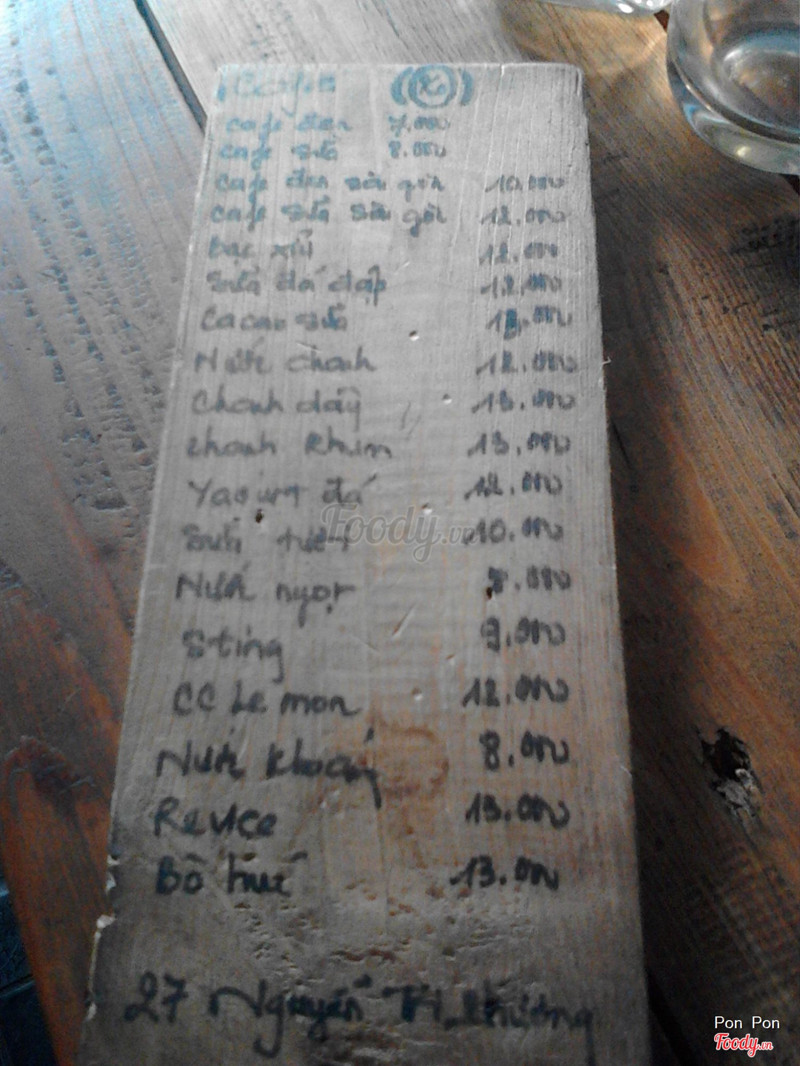 Cafe (Xô)
Cafe đen 7.000
Cafe sữa 8.000
Cafe đen sài gòn 10.000
Cafe sữa sài gòn 12.000
Bạc xỉu 12.000
Sữa đá đập 12.000
Cacao sữa 13.000
Nước chanh 12.000
Chanh dây 13.000
Chanh Rhum 13.000
Yaourt đá 12.000
Sữa tươi 10.000
Nước ngọt 8.000
Sting 9.000
CC Lemon 12.000
Nước khoáng 8.000
Revice 13.000
Bò húc 13.000
27 Nguyễn Tri Phương
Foody.vn
Pon Pon
Foody.vn